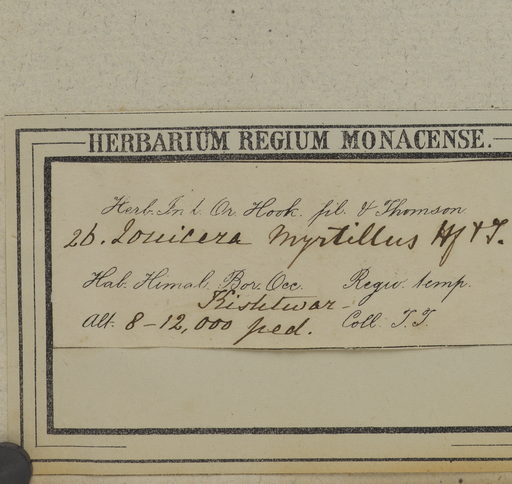 HERBARIUM REGIUM MONACENSE.
Herb. Ind. Or. Hook. fil. & Thomson
26. Lonicera Myrtillus Hf & T.
Hab. Himal. Bor. Occ. Regio temp.
Kishtwar -
Alt. 8-12,000 ped. Coll. T.T.